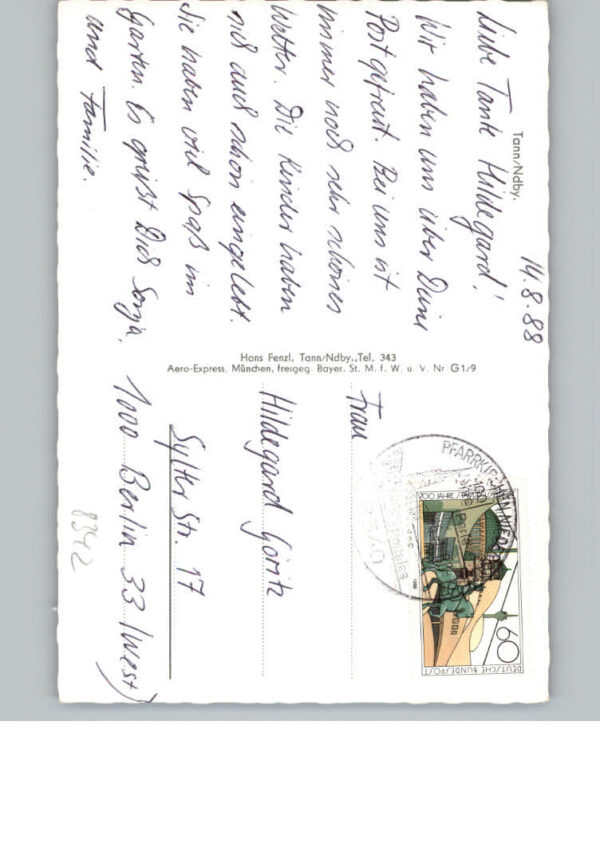 Tann/Ndby.
14.8.88
Liebe Tante Hildegard!
Wir haben uns über Deine
Post gefreut. Bei uns ist
immer noch sehr schönes
Wetter. Die Kinder haben
sich auch schon eingelebt.
Sie haben viel Spaß im
Garten. Es grüßt Dich Sonja,
und Familie.
Hans Fenzl, Tann/Ndby., Tel. 343
Aero-Express, München, freigeg. Bayer. St. M. f. W. u. V. Nr G 1/9
Frau
Hildegard Göritz
Sylter Str. 17
1000 Berlin 33 (West)
8342
PFARRKIRCHEN
8340
200 JAHRE
1988
60
DEUTSCHE BUNDESPOST